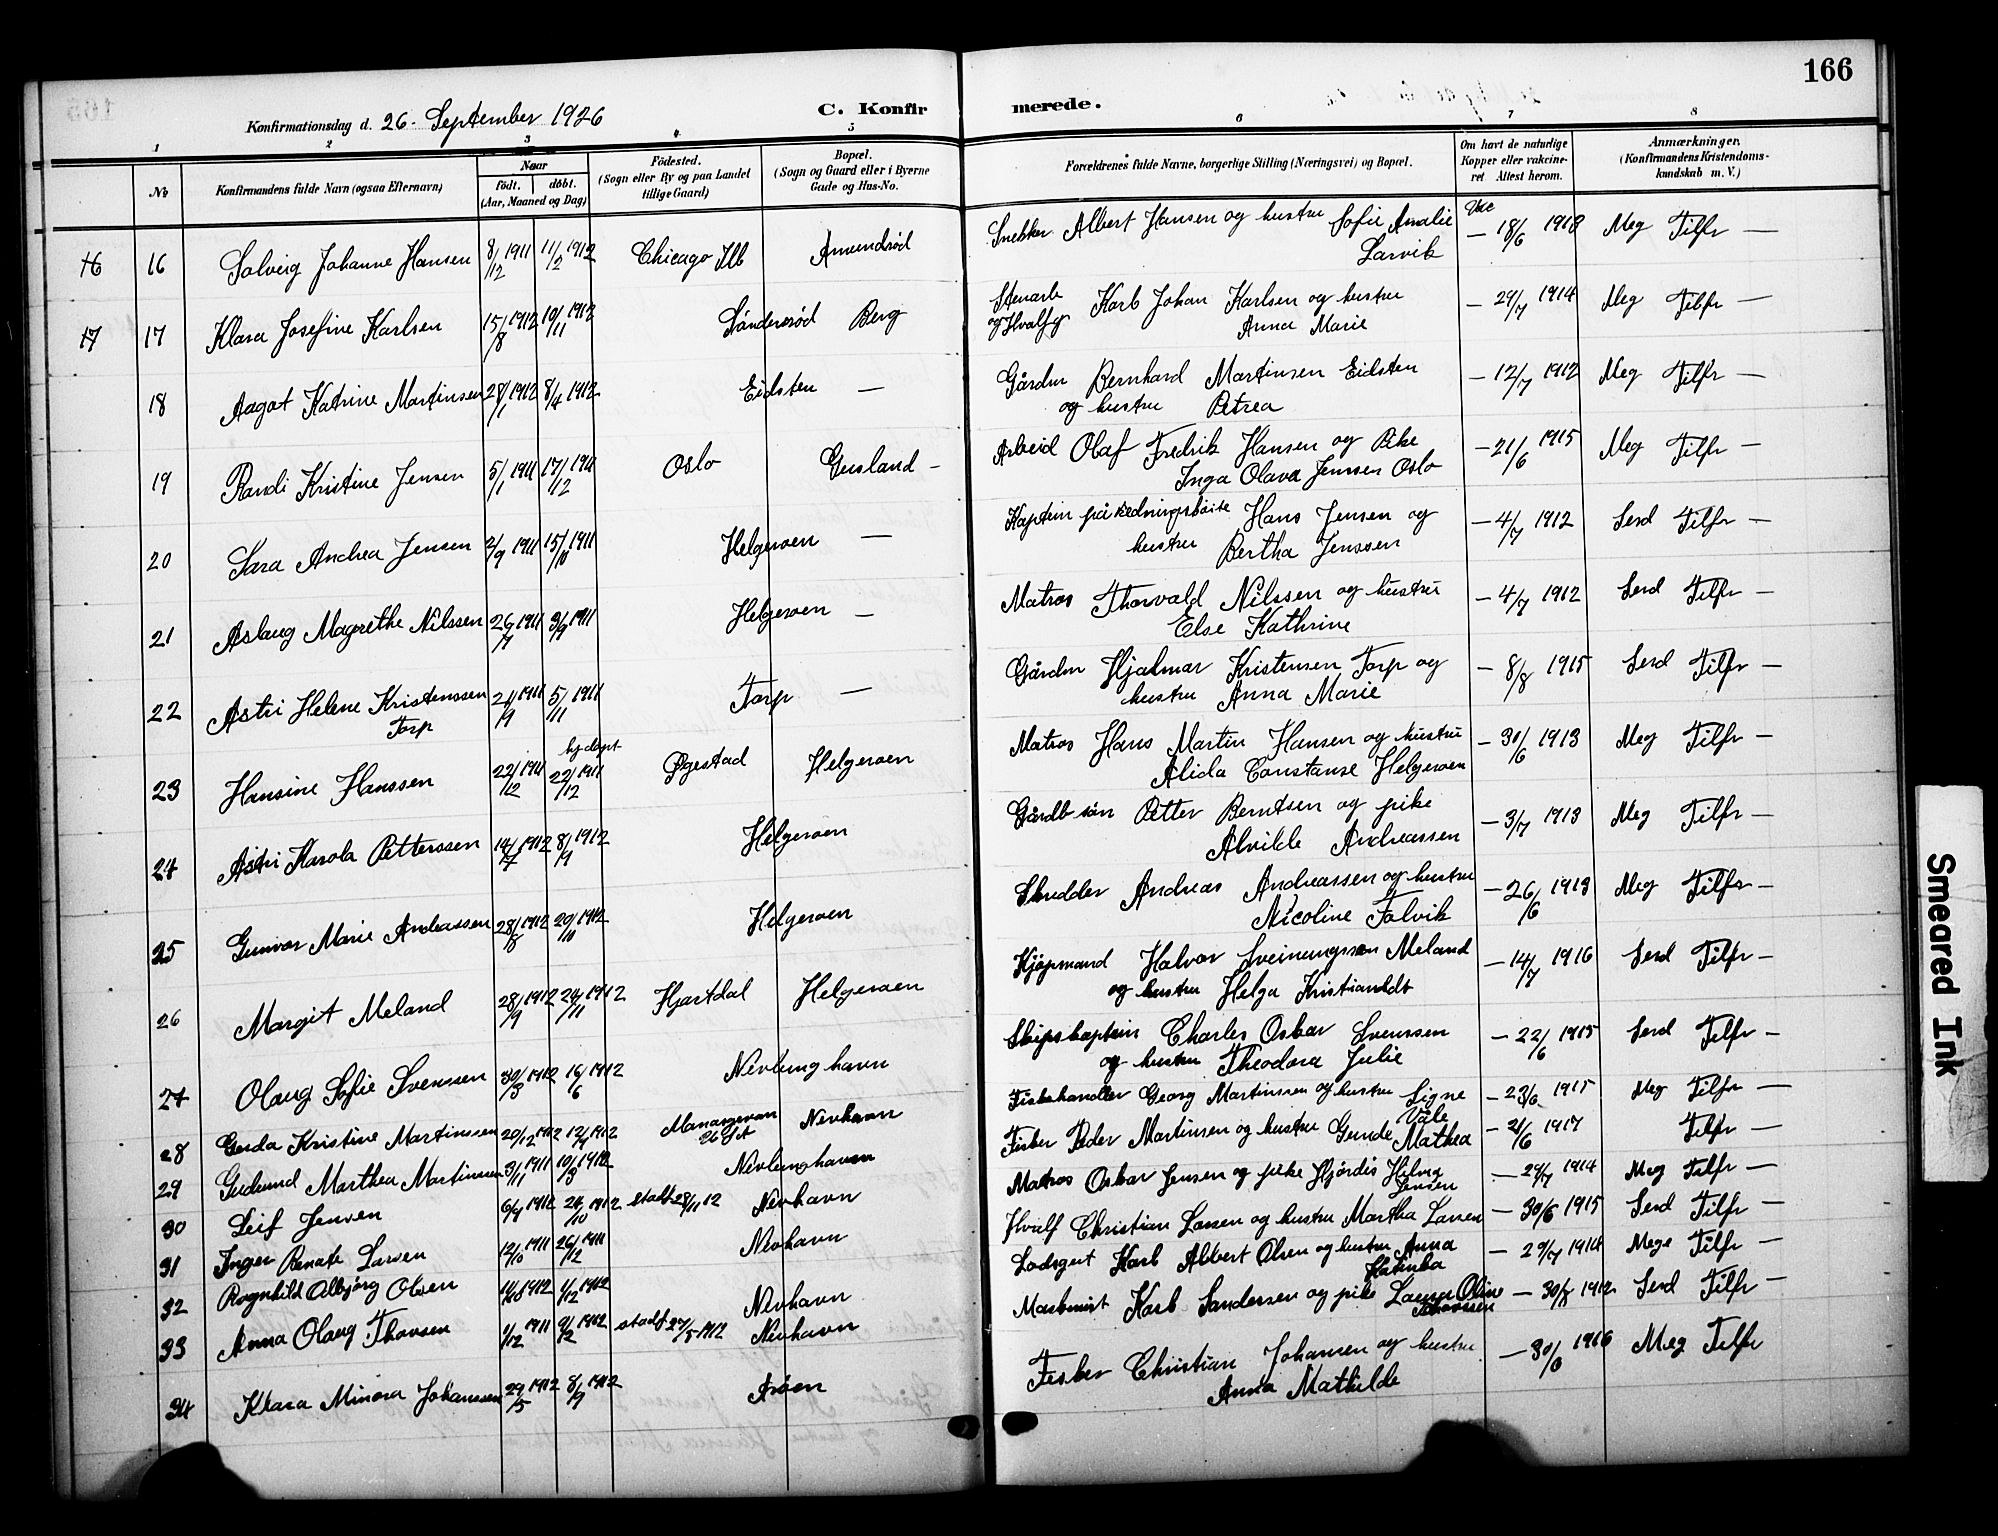 166
Konfirmationsdag d. 26. September 1926
C. Konfirmerede.
1 2 3 4 5 6 7 8
No
Konfirmandens fulde Navn (ogsaa Efternavn)
Naar
födt. döbt.
(Aar, Maaned og Dag)
Födested.
(Sogn eller By og paa Landet
tillige Gaard)
Bopæl.
(Sogn og Gaard eller i Byerne
Gade og Hus-No.
Forældrenes fulde Navne, borgerlige Stilling (Næringsvei) og Bopæl.
Om havt de naturlige
Kopper eller vakcine-
ret Attest herom.
Anmærkninger.
(Konfirmandens Kristendoms-
kundskab m. V.)
16 16 Solveig Johanne Hansen 8/12 1911 11/2 1912 Chicago Amundrød Snekker Albert Hansen og hustru Sofie Amalie Vac — 18/6 1918 Meg Tilfr —
Larvik
17 17 Klara Josefine Karlsen 15/8 1912 10/11 1912 Sönderröd Berg Stenarb Karl Johan Karlsen og hustru — 29/7 1914 Meg Tilfr —
og Hvalfg Anna Marie
18 Aagot Katrine Martinsen 28/1 1912 8/4 1912 Eidsten — Gårdm Bernhard Martinsen Eidsten — 12/7 1912 Meg Tilfr —
og hustru Petrea
19 Randi Kristine Jensen 5/1 1911 17/12 1911 Oslo Gusland — Arbeid Olaf Fredrik Hansen og Pike — 21/6 1915 Meg Tilfr —
Inga Olava Jenssen Oslo
20 Sara Andrea Jensen 2/9 1911 15/10 1911 Helgeroen — Kaptein på redningsböite Hans Jensen og — 4/7 1912 Serd Tilfr —
hustru Bertha Jenssen
21 Aslaug Magrethe Nilssen 26/7 1911 3/9 1911 Helgeroen — Matros Thorvald Nilssen og hustru — 4/7 1912 Serd Tilfr —
Else Kathrine
22 Astri Helene Kristenssen 21/9 1911 5/11 1911 Torp — Gårdm Hjalmar Kristensen Torp og — 8/8 1915 Serd Tilfr —
Torp hustru Anna Marie
23 Hansine Hanssen 22/12 1911 hj døpt 22/12 1911 Øgestad Helgeroen Matros Hans Martin Hansen og hustru — 30/6 1913 Meg Tilfr —
Alida Constanse Helgeroen
24 Astri Karola Petterssen 14/7 1912 8/9 1912 Helgeroen Gårdb sön Petter Berntsen og pike — 3/7 1913 Meg Tilfr —
Alvilde Andreassen
25 Gunvor Marie Andreassen 28/8 1912 20/10 1912 Helgeroen Skredder Andreas Andreassen og hustru — 26/6 1913 Meg Tilfr —
Nicoline Falvik
26 Margit Meland 28/9 1912 24/11 1912 Hjartdal Helgeroen Kjøpmand Halvor Sveinungssen Meland — 14/7 1916 Serd Tilfr —
og hustru Helga Kristiansdt
27 Olaug Sofie Svenssen 30/3 1912 16/6 1912 Nevlunghavn Skipskaptein Charles Oskar Svenssen — 22/6 1915 Serd Tilfr —
og hustru Theodora Julie
28 Gerda Kristine Martinssen 20/12 1912 Nevhavn Fiskehandler Georg Martinssen og hustru Signe — 23/6 1915 Meg Tilfr —
Våle
29 Gudrund Marthea Martinsen 3/11 1911 10/3 1912 Nevlunghavn Fisker Peder Martinsen og hustru Gunda Mathea — 21/6 1917 Tilfr —
30 Leif Jensen 6/9 1912 1912 stadf 28/11 12 Nevhavn Matros Oskar Jensen og pike Hjördis Helma — 29/7 1914 Meg Tilfr —
Jensen
31 Inger Renate Larsen 1911 26/12 1911 Nevhavn Hvalf Christian Larsen og hustru Martha Larsen — 30/6 1915 Serd Tilfr —
32 Rognhild Albjörg Olsen 1912 1/12 1912 Nevhavn Lodsgut Karl Albert Olsen og hustru Anna — 29/7 1914 Mege Tilfr —
33 Anna Olaug Thovsen 1/12 1911 1912 stadf 27/5 1912 Nevhavn Karl Sandersen og pike Oline — 30/8 1912 Serd Tilfr —
34 Klara Minora Johanssen 29/5 1912 8/9 1912 Aröen Fisker Christian Johansen og hustru — 30/6 1916 Meg Tilfr
Anna Mathilde
Smeared Ink